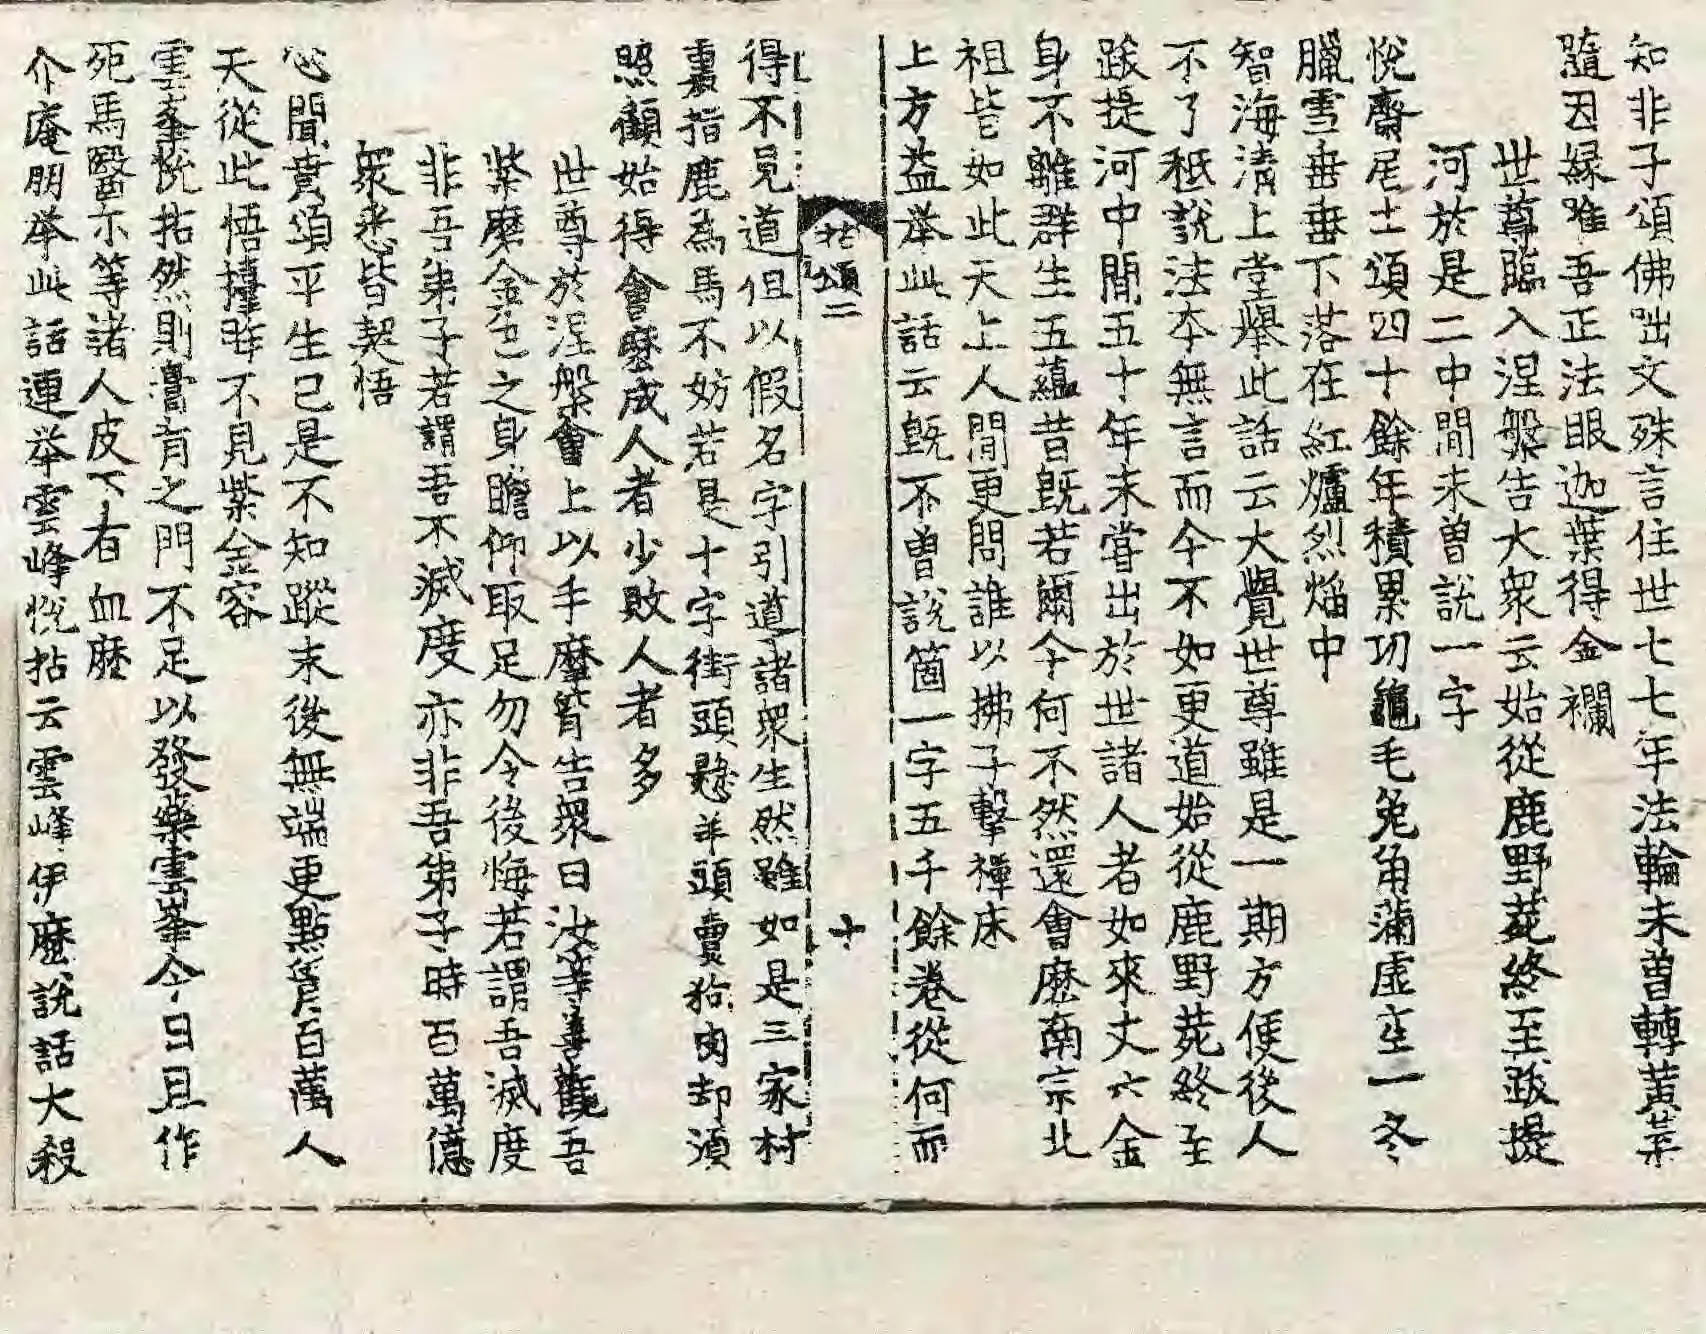 知非子頌佛咄文殊言住世七七年法輪未曾轉黃葉
隨因緣唯吾正法眼迦葉得金襴
世尊臨入涅槃告大衆云始從鹿野苑終至跋提
河於是二中間未曾說一字
悅齋居士頌四十餘年積累功龜毛兔角滿虛空一冬
臘雪垂垂下落在紅爐烈焰中
智海清上堂舉此話云大覺世尊雖是一期方便後人
不了秪說法本無言而今不如更道始從鹿野苑終至
跋提河中間五十年未甞出於世諸人者如來丈六金
身不離群生五蘊昔旣若爾今何不然還會麽南宗北
祖皆如此天上人間更問誰以拂子擊禪床
上方益举此話云旣不曾說箇一字五千餘卷從何而
拈頌二 十
得不見道但以假名字引導諸衆生然雖如是三家村
裏指鹿為馬不妨若是十字街頭懸羊頭賣狗肉却須
照顧始得會麽成人者少敗人者多
世尊於涅槃會上以手摩胷告衆曰汝等善觀吾
紫磨金色之身瞻仰取足勿令後悔若謂吾滅度
非吾弟子若謂吾不滅度亦非吾弟子時百萬億
衆悉皆契悟
心聞賁頌平生已是不知蹤末後無端更點胷百萬人
天從此悟擡眸不見紫金容
雲峯悅拈然則膏肓之門不足以發藥雲峯今日且作
死馬醫示等諸人皮下有血麽
介庵朋举此話連举雲峰悅拈云雲峰伊麽說話大殺